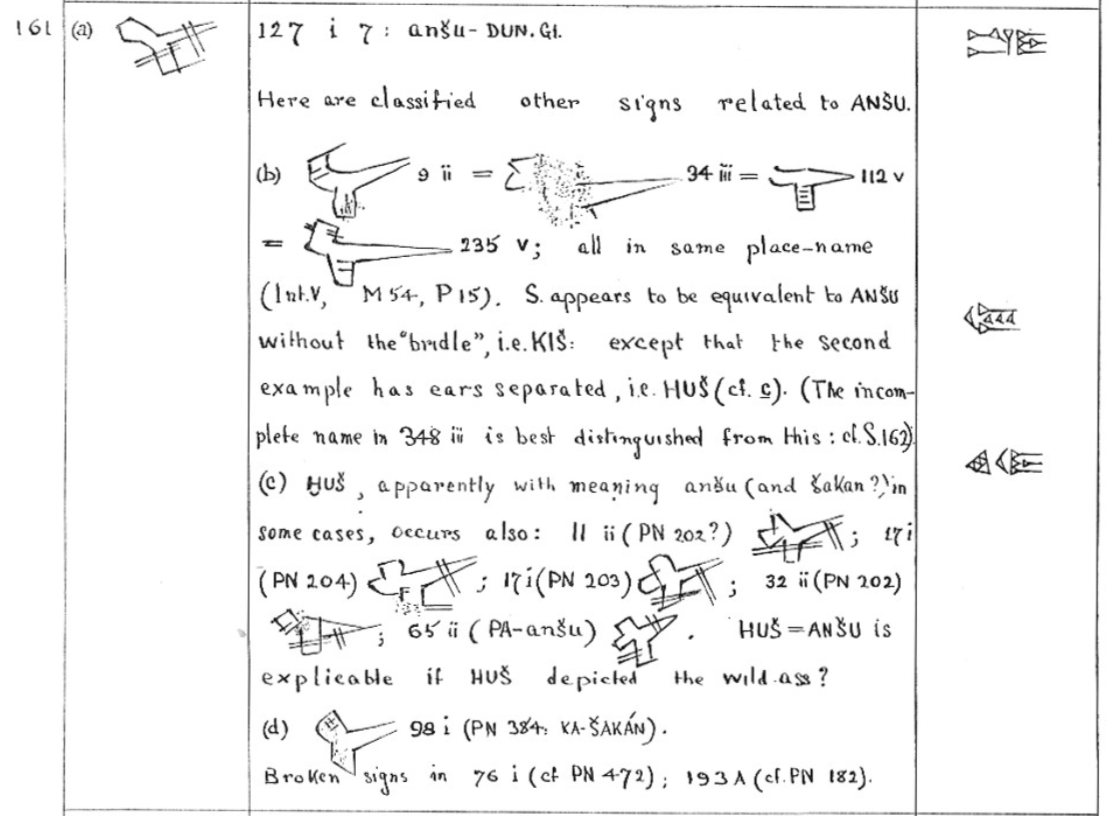 161 (a) 127 i 7 : anšu- DUN. GI.
Here are classified other signs related to ANŠU.
(b) 9 ii = 34 iii = 112 v
= 235 v; all in same place-name
(Int.V, M 54, P 15). S. appears to be equivalent to ANŠU
without the "bridle", i.e. KIŠ: except that the second
example has ears separated, i.e. HUŠ (cf. c). (The incom-
plete name in 348 iii is best distinguished from this : cf. S.162)
(c) HUŠ, apparently with meaning anšu (and šakan?) in
some cases, occurs also: 11 ii (PN 202?) ; 17 i
(PN 204) ; 17 i (PN 203) ; 32 ii (PN 202)
; 65 ii ( PA-anšu) . HUŠ = ANŠU is
explicable if HUŠ depicted the wild-ass?
(d) 98 i (PN 384: KA-ŠAKÁN).
Broken signs in 76 i (cf PN 472); 193 A (cf. PN 182).